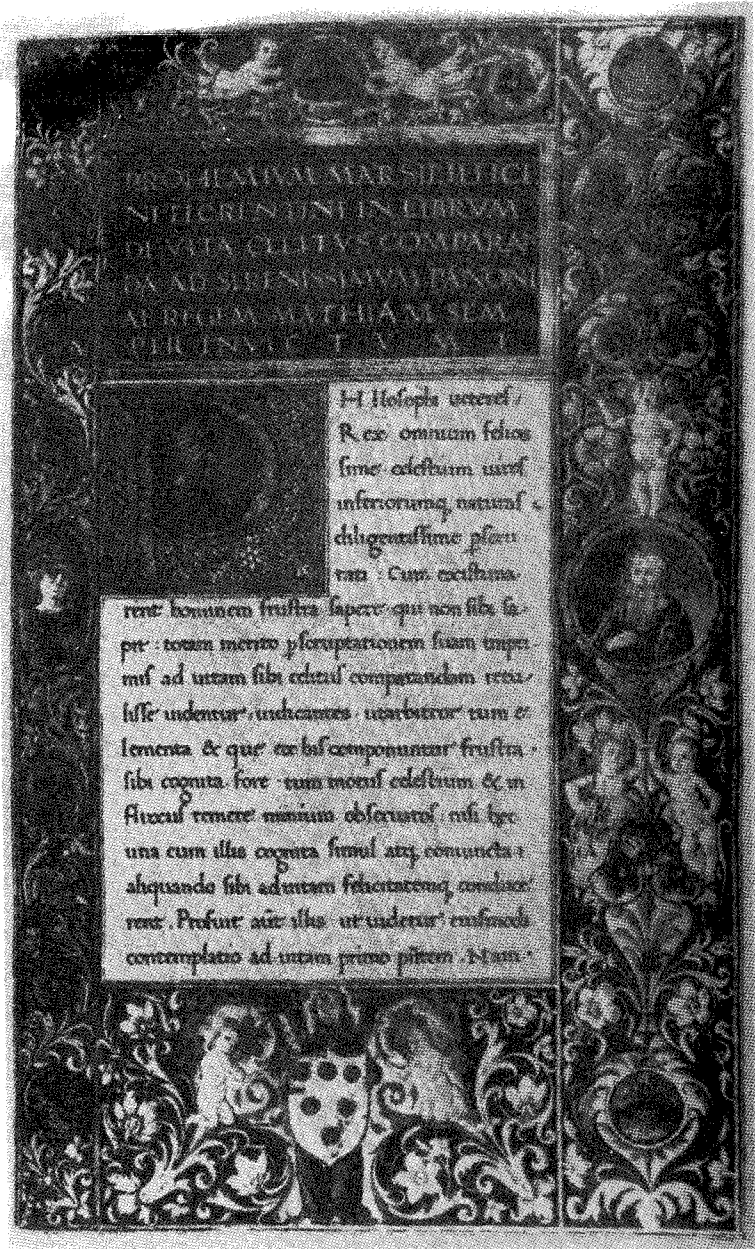 PROHEMIVM MARSILII FICI
NI FLORENTINI IN LIBRVM
DE VITA CELITVS COMPARAN
DA AD SERENISSIMVM PANNONI
AE REGEM MATHIAM SEM
PER INVICTVM
HIlosophi ueteres /
Rex omnium felicis
sime celestium uires
inferiorumq; naturas
diligentissime pscru
tati : Cum existima
rent hominem frustra sapere qui non sibi sa
pit : totam merito pscruptationem suam impri
mis ad uitam sibi celitus comparandam retu
lisse uidentur : iudicantes utarbitror tum e
lementa & que ex his componuntur frustra
sibi cognita fore tum motus celestium & in
fluxus temere nimium obseruatos nisi hec
una cum illis cognita simul atq; coniuncta
aliquando sibi aduitam felicitatemq; conduce
rent . Profuit aūt illis ut uidetur eiusmodi
contemplatio ad uitam primo pñtem . Nam